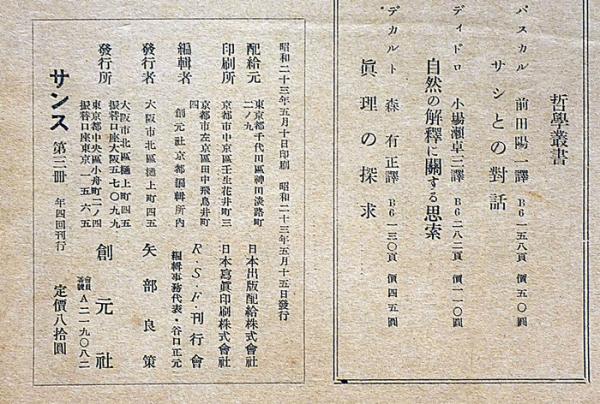 哲學叢書
パスカル 前田陽一譯 B6一五八頁 價五〇圓
サシとの對話
ディドロ 小場瀬卓三譯 B6二八二頁 價一一〇圓
自然の解釋に關する思索
デカルト 森有正譯 B6一三〇頁 價四五圓
眞理の探求
昭和二十三年五月十日印刷 昭和二十三年五月十五日發行
配給元 東京都千代田區神田淡路町二ノ九 日本出版配給株式會社
印刷所 京都市中京區壬生花井町三 日本寫眞印刷株式會社
京都市左京區田中飛鳥井町四 R.S.F刊行會
編輯者 創元社京都編輯所内 編輯事務代表・谷口正元
發行者 大阪市北區樋上町四五 矢部良策
大阪市北區樋上町四五
振替口座大阪五七〇九九
發行所 創元社
東京都中央區小舟町二ノ四
振替口座東京一五六五
會員番號 A二一九〇八二
サンス 第三冊 年四回刊行 定價八拾圓